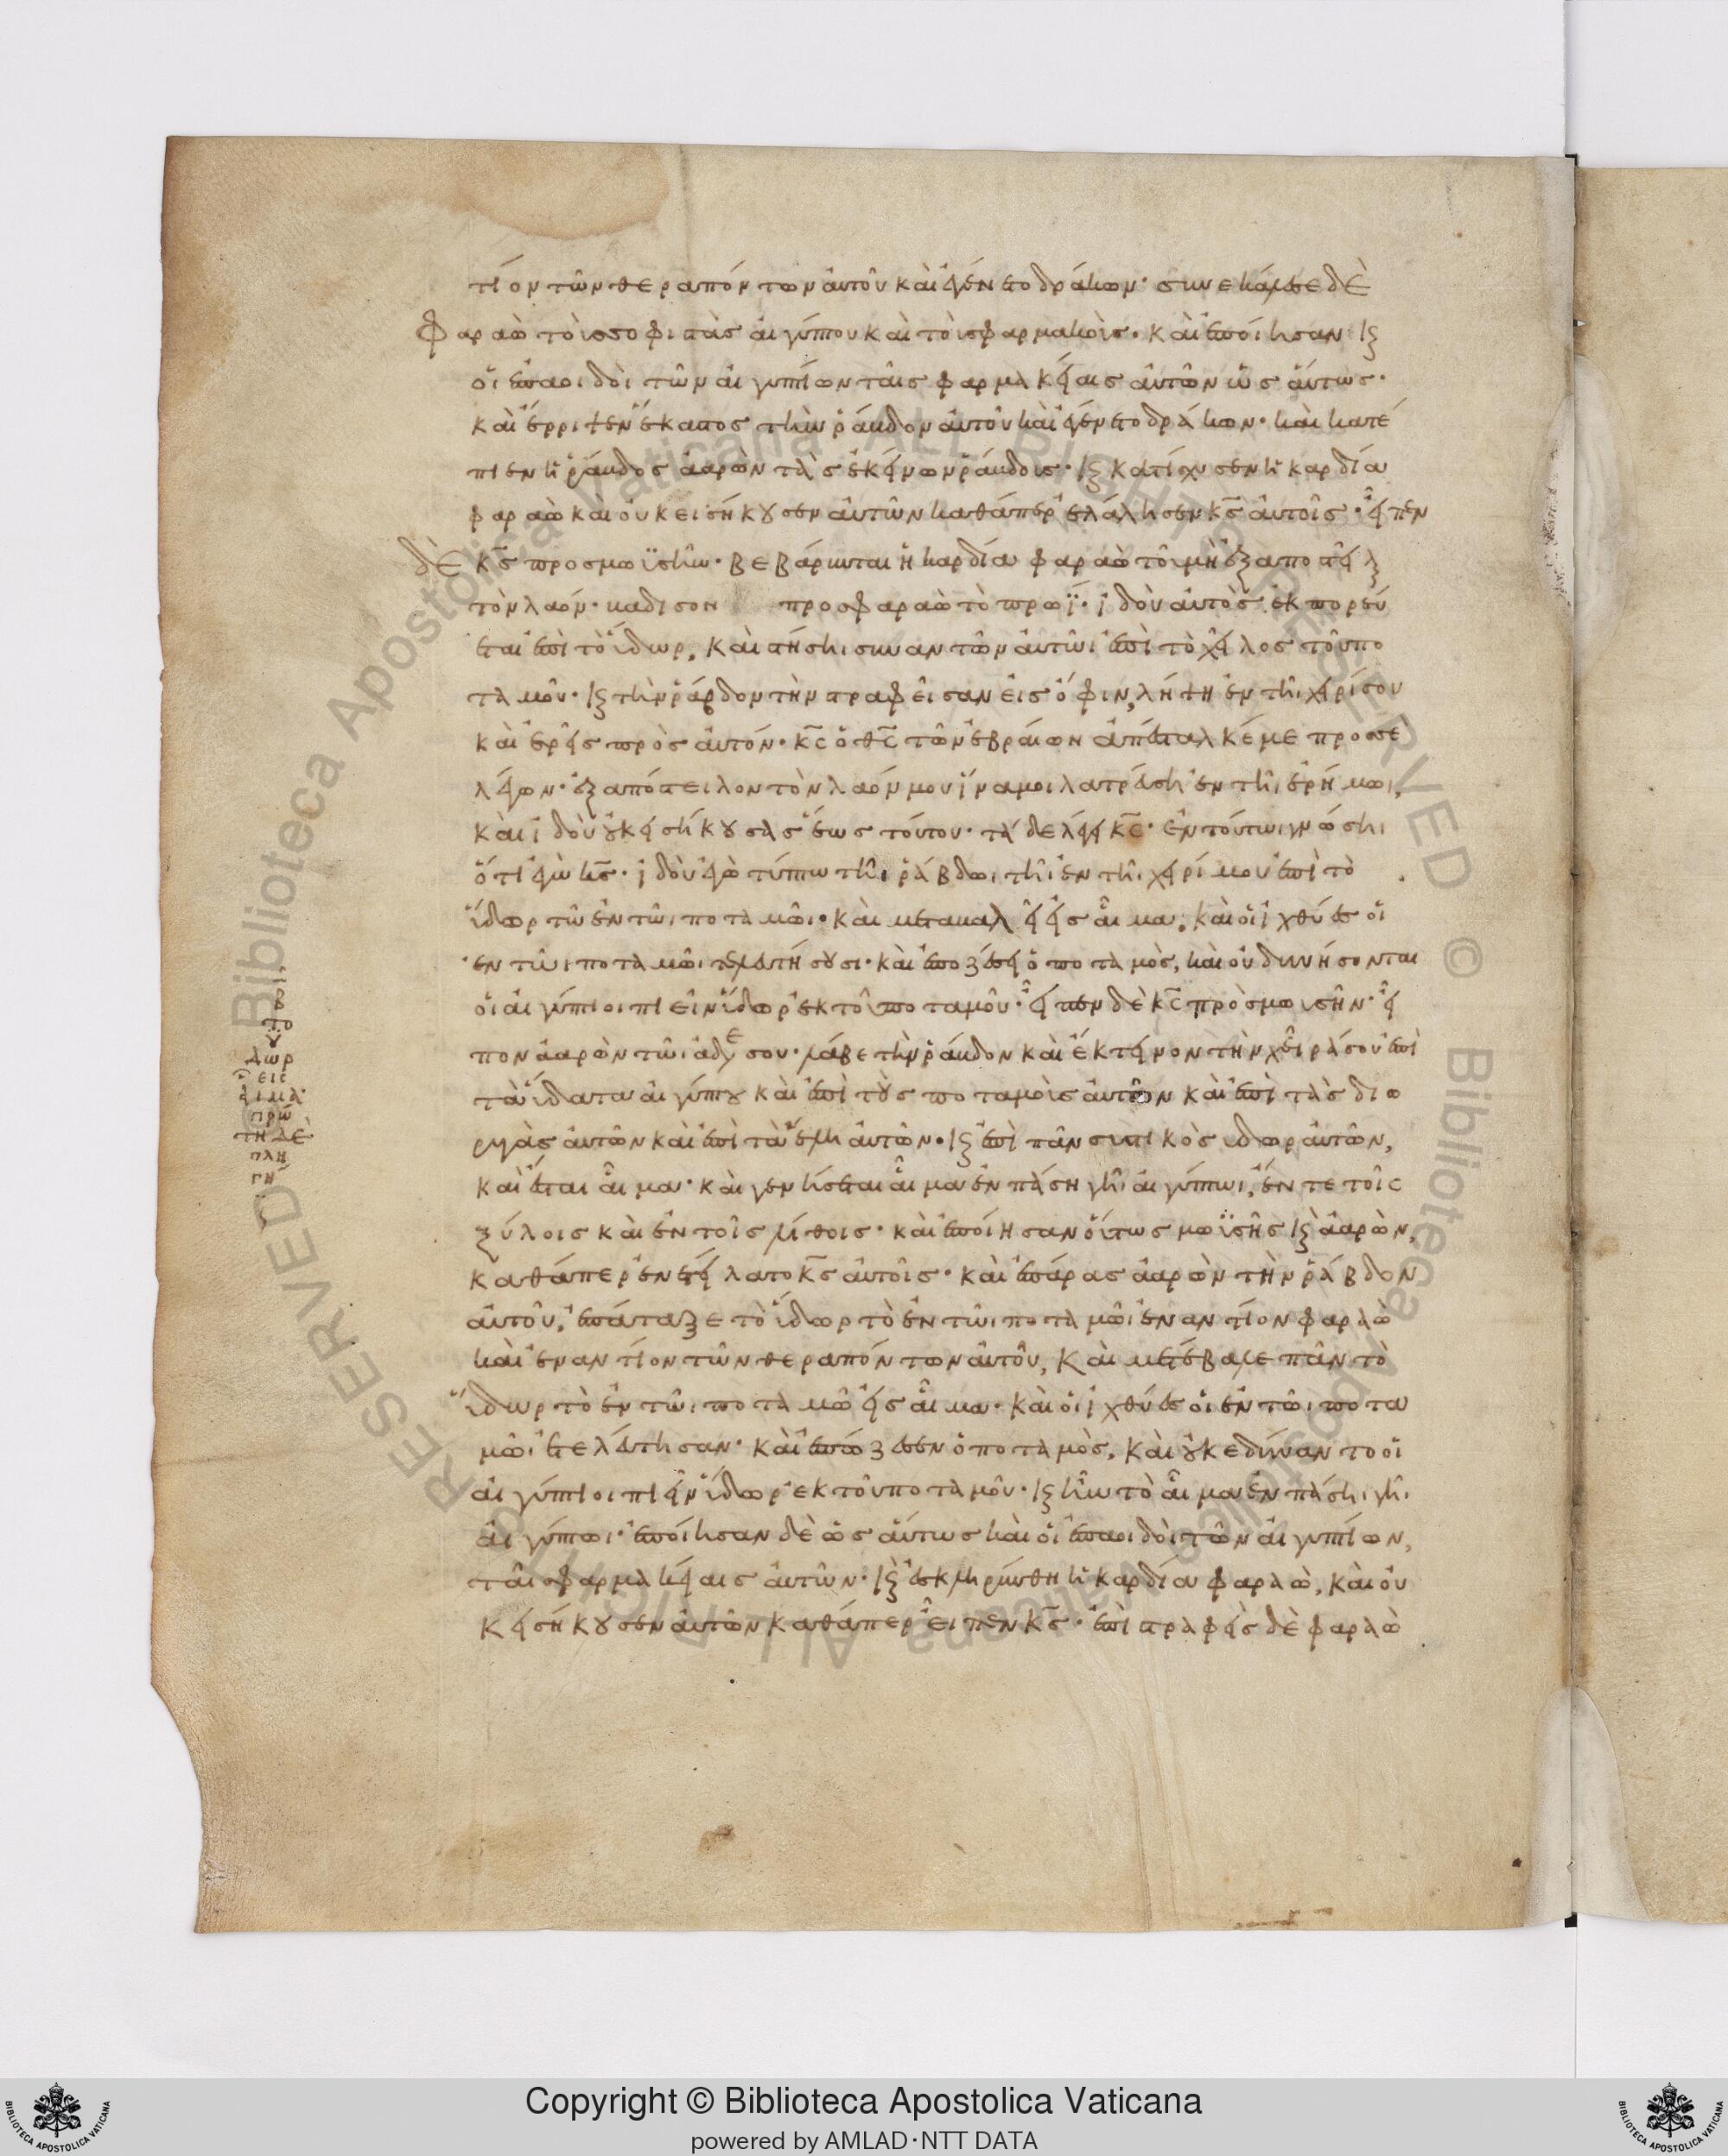 τίον τῶν θεραπόντων ἀυτοῦ καὶ ἐγένετο δράκων· συνεκάλεσε δὲ
Φαραὼ τοὺς σοφιστὰς ἀιγύπτου καὶ τοὺς φαρμακοὺς· καὶ ἐποίησαν κ(αὶ)
οἱ ἐπαοιδοὶ τῶν ἀιγυπτίων ταῖς φαρμακείαις ἀυτῶν ὡσάυτως·
καὶ ἔρριψεν ἕκαστος τὴν ῥάβδον ἀυτοῦ καὶ ἐγένετο δράκων· καὶ κατέ
πιεν ἡ ῥάβδος ἀαρὼν τὰς ἐκείνων ῥάβδους· κ(αὶ) κατίχυσεν ἡ καρδία
φαραὼ καὶ οὐκ εισήκουσεν ἀυτῶν καθάπερ ἐλάλησεν κ̅ς̅ ἀυτοῖς· εἶπεν
δὲ κ̅ς̅ προς μωϋσῆν· βεβάρυνται ἡ καρδία φαραὼ τοῦ μὴ ἐξαποστεῖλ
τὸν λαόν· βαδισον προς φαραὼ τὸ πρωΐ· ἰδοὺ ἀυτὸς ἐκπορεύ
εται ἐπὶ τὸ ὕδωρ, καὶ στήση συναντῶν ἀυτῶι ἐπὶ τὸ χεῖλος τοῦ πο
ταμοῦ· κ(αὶ) τὴν ῥάβδον τὴν στραφεῖσαν εἰς ὄφιν, λήψη ἐν τῆι χειρί σου
καὶ ἐρεῖς πρὸς ἀυτόν· κ̅ς̅ ὁ θ̅ς̅ τῶν ἑβραίων ἀπέσταλκέ με προς σὲ
λέγων· ἐξαπόστειλον τὸν λαόν μου ἵνα μοι λατρεύση ἐν τῆι ἐρήμωι,
καὶ ἰδοὺ οὐκ εισήκουσας ἕως τούτου· τάδε λέγει κ̅ς̅· ἐν τούτωι γνώση
ὅτι ἐγὼ κ̅ς̅· ἰδοὺ ἐγὼ τύπτω τῆι ῥάβδωι τῆι ἐν τῆι χειρί μου ἐπὶ τὸ
ὕδωρ τῶ ἐν τῶι ποταμῶι· καὶ μεταβαλεῖ εἰς αἷμα, καὶ οἱ ἰχθύες οἱ
ἐν τῶι ποταμῶι τελευτήσουσι· καὶ ἐποζέσει ὁ ποταμὸς, καὶ οὐ δυνήσονται
οἱ αἰγύπτιοι πιεῖν ὕδωρ ἐκ τοῦ ποταμοῦ· εἶπεν δὲ κ̅ς̅ πρὸς μωυσῆν· εἶ
πον ἀαρὼν τῶι ἀδελφῶ σου· λάβε τὴν ῥάβδον καὶ ἔκτεινον τὴν χεῖρά σου ἐπὶ
τὰ ὕδατα αἰγύπτου καὶ ἐπὶ τοὺς ποταμοὺς ἀυτῶν καὶ ἐπὶ τὰς διω
ρυγὰς ἀυτῶν καὶ ἐπὶ τὰ ἕλη ἀυτῶν· κ(αὶ) ἐπὶ πᾶν συνεστηκὸς ὕδωρ ἀυτῶν,
καὶ ἔσται αἷμα· καὶ γενήσεται αἷμα ἐν πάση γῆ αἰγύπτωι, ἔν τε τοῖς
ξύλοις καὶ ἐν τοῖς λίθοις· καὶ ἐποίησαν οὕτως μωϋσῆς κ(αὶ) ἀαρὼν,
καθάπερ ἐνετείλατο κ̅ς̅ ἀυτοῖς· καὶ ἐπάρας ἀαρὼν τὴν ῥάβδον
ἀυτοῦ, ἐπάταξε τὸ ὕδωρ τὸ ἐν τῶι ποταμῶι ἐναντίον φαραὼ
καὶ ἐναντίον τῶν θεραπόντων ἀυτοῦ, καὶ μετέβαλε πᾶν τὸ
ὕδωρ τὸ ἐν τῶι ποταμῶ εἰς αἷμα· καὶ οἱ ἰχθύες οἱ ἐν τῶι ποτα
μῶι ἐτελεύτησαν· καὶ ἐπώζεσεν ὁ ποταμὸς, καὶ οὐκ εδύναντο οἱ
αἰγύπτιοι πιεῖν ὕδωρ ἐκ τοῦ ποταμοῦ· κ(αὶ) ἦν τὸ αἷμα ἐν πάση γῆ
αἰγύπτωι· ἐποίησαν δὲ ὡσάυτως καὶ οἱ ἐπαοιδοὶ τῶν αἰγυπτίων,
ταῖς φαρμακείαις ἀυτῶν· κ(αὶ) ἐσκληρύνθη ἡ καρδία φαραὼ, καὶ οὐ
κ εισήκουσεν ἀυτῶν καθάπερ εἶπεν κ̅ς̅· ἐπιστραφεὶς δὲ φαραὼ
το
ὕ
δωρ
εις
αιμα
πρώ
τη δὲ
πλη
γή